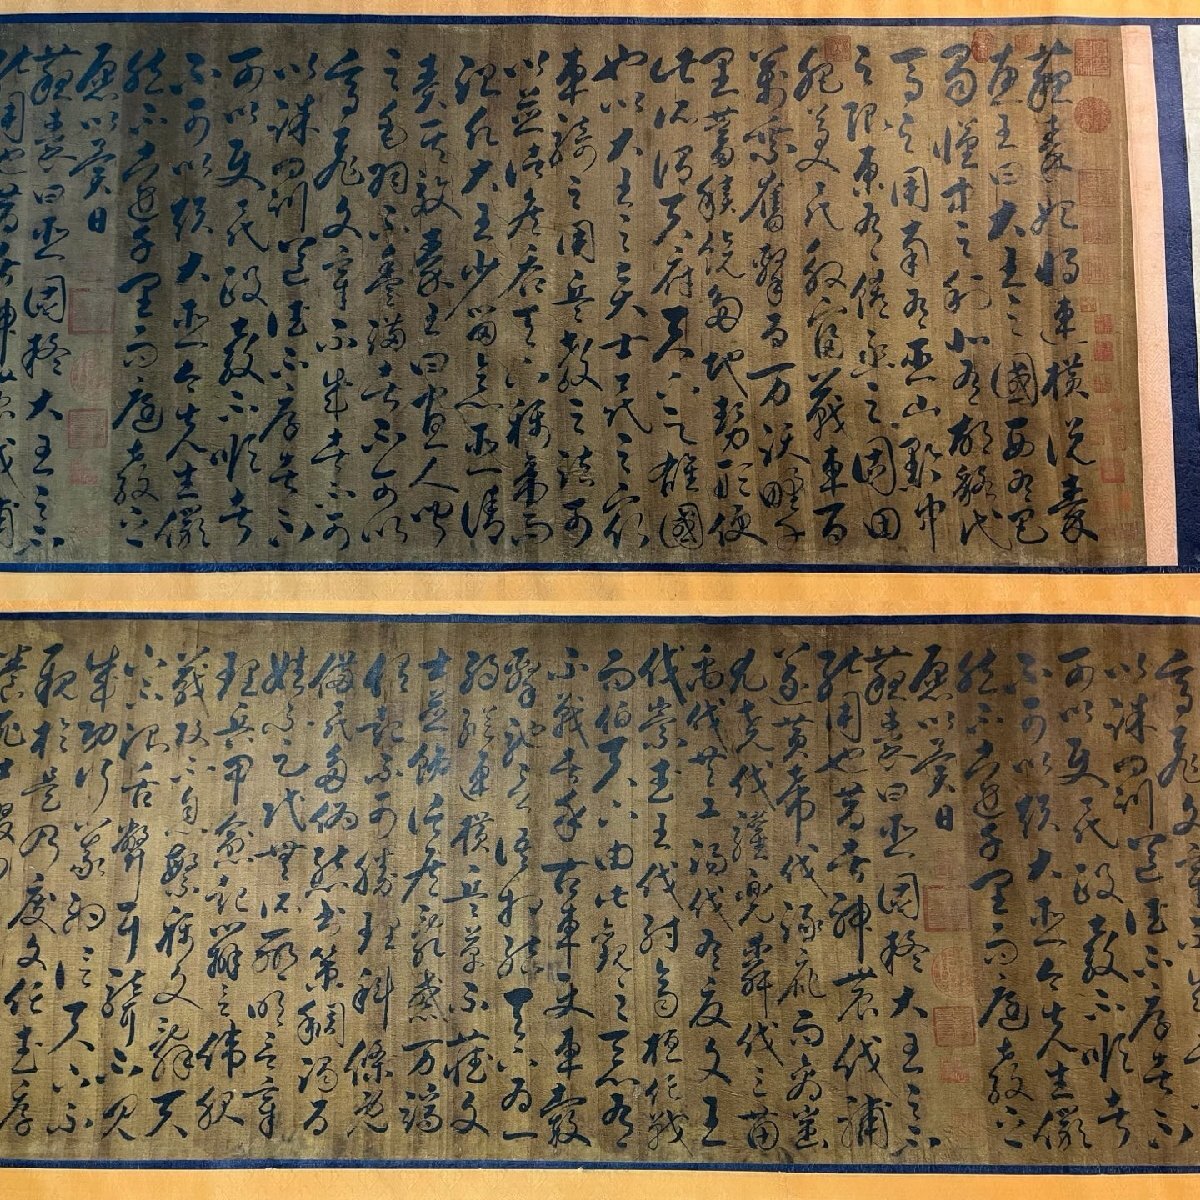 蘇秦始將連橫說秦
惠王曰大王之國西有巴
蜀漢中之利北有胡貉代
馬之用南有巫山黔中
之限東有崤函之固田
肥美民殷富戰車百
萬乘奮擊百万沃野千
里蓄積饒多地勢形便
此所謂天府天下之雄國
也以大王之賢士民之衆
車騎之用兵教之法可
以并諸侯吞天下稱帝而
治願大王少留意臣請
奏其效秦王曰寡人聞
之毛羽不豐滿者不可以
高飛文章不成者不可
以誅罰道德不厚者不
可以使民政教不順者
不可以煩大臣今先生儼
然不遠千里而庭教之
願以異日
蘇秦曰臣固疑大王之不
能用也昔者神農伐補
高飛文章
以誅罰道德不厚者不
可以使民政教不順者
不可以煩大臣今先生儼
然不遠千里而庭教之
願以異日
蘇秦曰臣固疑大王之不
能用也昔者神農伐補
遂黃帝伐涿鹿而禽蚩
尤堯伐驩兜舜伐三苗
禹伐共工湯伐有夏文王
伐崇武王伐紂齊桓任戰
而伯天下由此觀之惡有
不戰者乎古者使車轂
擊馳言語相結天下為一
約縱連橫兵革不藏文
士並飾諸侯亂惑万端
俱起不可勝理科條既
備民多偽態書策稠濁百
姓不足代無所聊明言章
理兵甲愈起辯言偉服
戰攻不息繁稱文辭天
下不治舌弊耳聾不見
成功行義約信天下不
親於是乃廢文任武厚
養死士綴甲